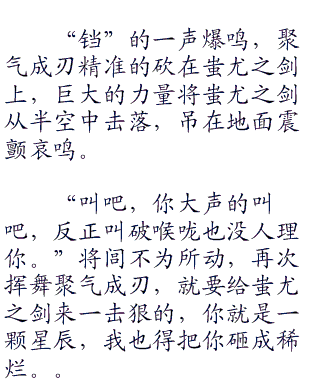 “铛”的一声爆鸣，聚
气成刃精准的砍在蚩尤之剑
上，巨大的力量将蚩尤之剑
从半空中击落，吊在地面震
颤哀鸣。
“叫吧，你大声的叫
吧，反正叫破喉咙也没人理
你。”将闾不为所动，再次
挥舞聚气成刃，就要给蚩尤
之剑来一击狠的，你就是一
颗星辰，我也得把你砸成稀
烂。。